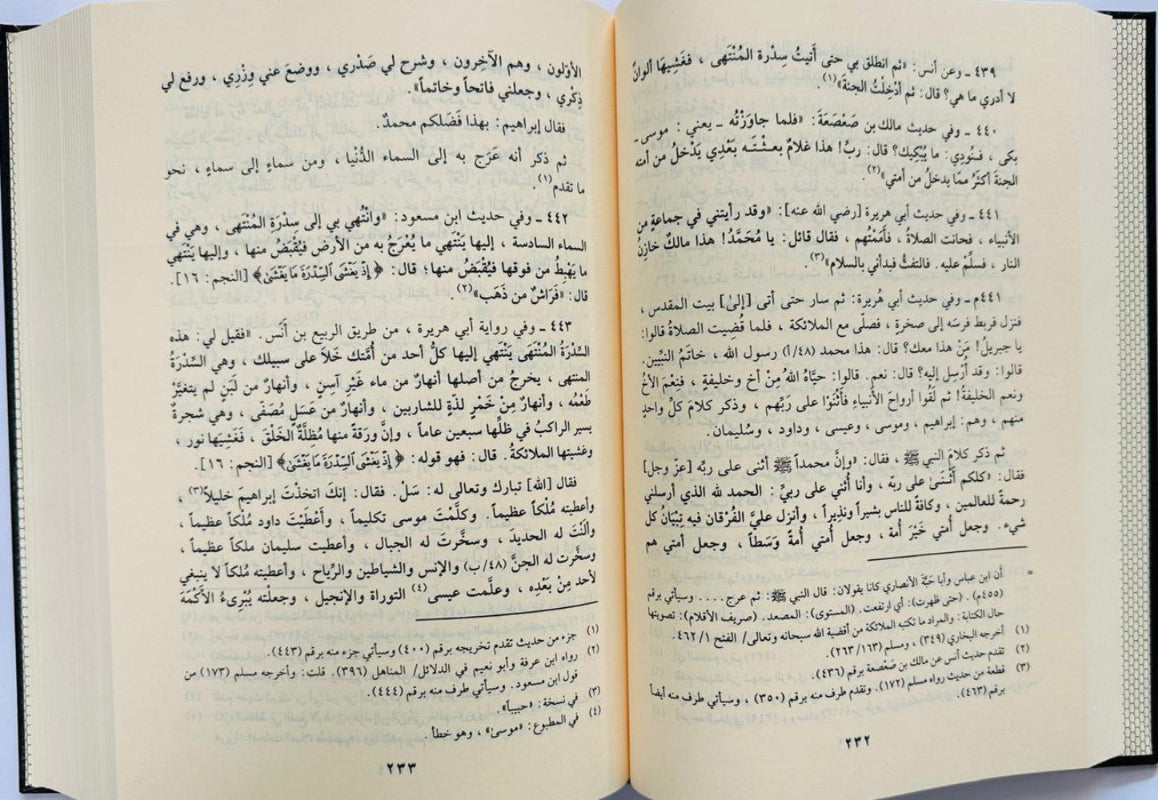 ٤٣٩ ـ وعن أنس: «ثم انطلق بي حتى أَتيتُ سِدْرة المُنْتَهى ، فغَشِيهَا ألوانٌ
لا أدري ما هي؟ قال: ثم أُدْخِلْتُ الجنةَ»(١).
٤٤٠ ـ وفي حديث مالك بن صَعْصَعَةَ: «فلما جاوَزْتُه ـ يعني : موسى ـ
بكى ، فنودِي: ما يُبْكيك؟ قال: ربِّ! هذا غلامٌ بعثْتَـه بَعْدِي يَدْخلُ من أمته
الجنةَ أكثَرُ ممّا يدخلُ من أمتي»(٢).
٤٤١ ـ وفي حديث أبي هريرة [رضي الله عنه]: «وقد رأيتني في جماعةٍ من
الأنبياء ، فحانت الصلاةُ ، فأمَمْتُهم ، فقال قائل: يا مُحَمَّدُ! هذا مالكٌ خازِنُ
النار ، فسلِّمْ عليه. فالتفتُّ فبدأني بالسلام»(٣).
٤٤١م ـ وفي حديث أبي هُريرة: ثم سار حتى أتى [إلى] بيت المقدس ،
فنزل فربط فرسَه إلى صخرةٍ ، فصلّى مع الملائكة ، فلما قُضِيت الصلاةُ قالوا:
يا جبريلُ! مَنْ هذا معك؟ قال: هذا محمد (٤٨/أ) رسول الله ، خاتَمُ النَّبِيِّين.
قالوا: وقد أُرْسِل إليه؟ قال: نعم. قالوا: حيَّاهُ اللهُ مِنْ أخ وخليفةٍ ، فنِعْمَ الأخُ
ونعم الخليفةُ! ثم لَقُوا أرواحَ الأنبياءِ فأَثْنَوْا على رَبِّهم ، وذكر كلامَ كلِّ واحدٍ
منهم ، وهم: إبراهيم ، وموسى ، وعيسى ، وداود ، وسُليمان.
ثم ذكر كلامَ النبي ﷺ ، فقال: «وإنَّ محمداً ﷺ أثنى على ربِّه [عزّ وجل]
فقال: «كلكم أَثْـنَىٰ على ربّه ، وأنا أُثني على ربيّ : الحمد لله الذي أرسلني
رحمةً للعالمين ، وكافَّةً للناس بشيراً ونذيراً ، وأنزل عليَّ الفُرْقان فيه تِبْيَانُ كل
شيء. وجعل أُمتي خَيْرَ أُمة ، وجعل أُمتي أُمةً وَسَطاً ، وجعل أمتي هم
= أن ابن عباس وأبا حَبَّةَ الأنصاري كانا يقولان: قال النبي ﷺ: ثم عرج.... وسيأتي برقم
(٤٥٥م). (حتى ظهرت): أي ارتفعت. (المستوى): المصعد. (صريف الأقلام): تصويتها
حال الكتابة: والمراد ما تكتبه الملائكة من أقضية الله سبحانه وتعالى/ الفتح ١/ ٤٦٢.
(١) أخرجه البخاري (٣٤٩) ، ومسلم (١٦٣/ ٢٦٣).
(٢) تقدم حديث أنس عن مالك بن صَعْصعة برقم (٤٣٦).
(٣) قطعة من حديث رواه مسلم (١٧٢). وتقدم طرف منه برقم (٣٥٠) ، وسيأتي طرف منه أيضاً
برقم (٤٦٣).
٢٣٢
الأَوَّلون ، وهم الآخِرون ، وشرح لي صَدْري ، ووضعَ عني وِزْرِي ، ورفع لي
ذِكْري ، وجعلني فاتحاً وخاتماً».
فقال إبراهيم: بهذا فَضَلكم محمدٌ.
ثم ذكر أنه عَرَج به إلى السماء الدُّنْيا ، ومن سماءٍ إلى سماءٍ ، نحو
ما تقدم(١).
٤٤٢ ـ وفي حديث ابن مسعود: «وانْتُهي بي إلى سِدْرَةِ المُنْتَهى ، وهي في
السماء السادسة ، إليها يَنْتَهي ما يُعْرَجُ به من الأرض فيُقْبَضُ منها ، وإليها يَنْتَهي
ما يَهْبِطُ من فوقها فيُقْبَضُ منها؛ قال: ﴿إِذْ يَغْشَى ٱلسِّدْرَةَ مَا يَغْشَىٰ﴾ [النجم: ١٦].
قال: «فَرَاشٌ من ذَهَب»(٢).
٤٤٣ ـ وفي رواية أبي هريرة ، من طريق الربيع بن أَنَس. «فقيل لي: هذه
السِّدْرَةُ المُنْتَهَى يَنْتَهي إليها كلُّ أحد من أُمَّتك خَلَا على سبيلك ، وهي السِّدْرَةُ
المنتهى ، يخرجُ من أصلها أنهارٌ من ماء غَيْرِ آسِنٍ ، وأنهارٌ من لَبَنٍ لم يتغيَّرْ
طَعْمُه ، وأنهارٌ مِنْ خَمْرٍ لذّةٍ للشاربين ، وأنهارٌ من عَسَلٍ مُصَفّى ، وهي شجرةٌ
يسير الراكبُ في ظلِّها سبعين عاماً ، وإنَّ ورَقةً منها مُظِلَّةٌ الخَلْقَ ، فغَشِيَها نور ،
وغشيتها الملائكةُ. قال: فهو قوله: ﴿إِذْ يَغْشَى ٱلسِّدْرَةَ مَا يَغْشَىٰ﴾ [النجم: ١٦].
فقال [الله] تبارك وتعالى له: سَلْ. فقال: إنكَ اتخذْتَ إبراهيمَ خليلاً(٣) ،
وأعطيته مُلْكاً عظيماً. وكلَّمْتَ موسى تكليماً ، وأَعْطَيْتَ داود مُلْكاً عظيماً ،
وأَلَنْتَ له الحديدَ ، وسخَّرتَ له الجبال ، وأعطيت سليمان ملكاً عظيماً ،
وسخَّرت له الجنَّ (٤٨/ب) والإنس والشياطين والرِّياح ، وأعطيته مُلكاً لا ينبغي
لأحد مِنْ بَعْدِه ، وعلّمت عيسى(٤) التوراة والإنجيل ، وجعلته يُبْرىءُ الأَكْمَهَ
(١) جزء من حديث تقدم تخريجه برقم (٤٠٠) وسيأتي جزء منه برقم (٤٤٣).
(٢) رواه ابن عرفة وأبو نعيم في الدلائل/ المناهل (٣٩٦). قلت: وأخرجه مسلم (١٧٣) من
قول ابن مسعود. وسيأتي طرف منه برقم (٤٤٤).
(٣) في نسخة: «حبيباً».
(٤) في المطبوع: «موسىٰ» ، وهو خطأ.
٢٣٣